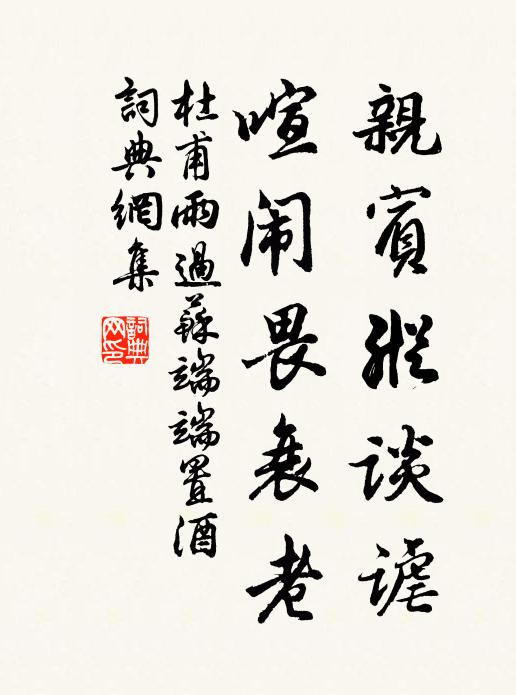 親賓縱談謔
喧闹畏衰老
杜甫雨過蘇端端置酒
詞典網集
詞典网印